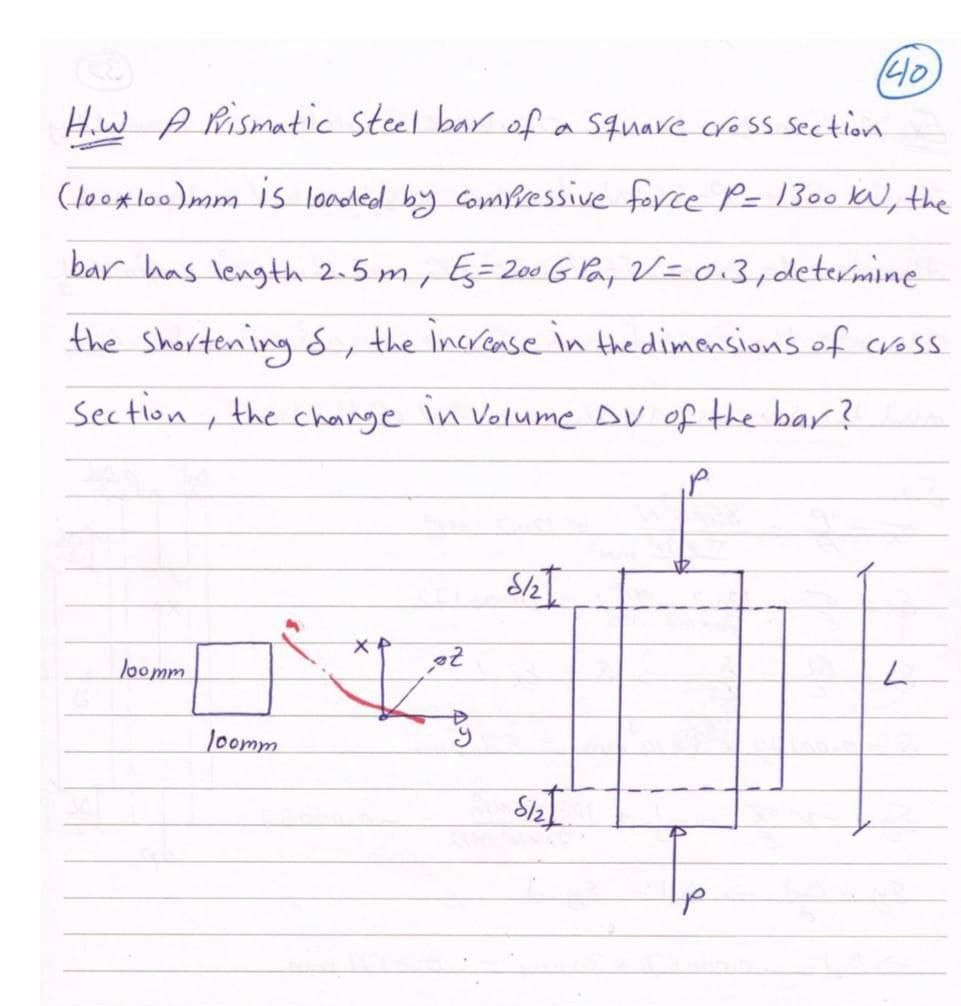 40
H.W A Prismatic steel bar of a square cross section
(100*100)mm is loaded by compressive force P= 1300 kN, the
bar has length 2.5m, Es=200 GPa, ν=0.3, determine
the shortening δ, the increase in the dimensions of cross
section, the change in volume ΔV of the bar?
P
δ/2
x
z
100mm
L
y
100mm
δ/2
P